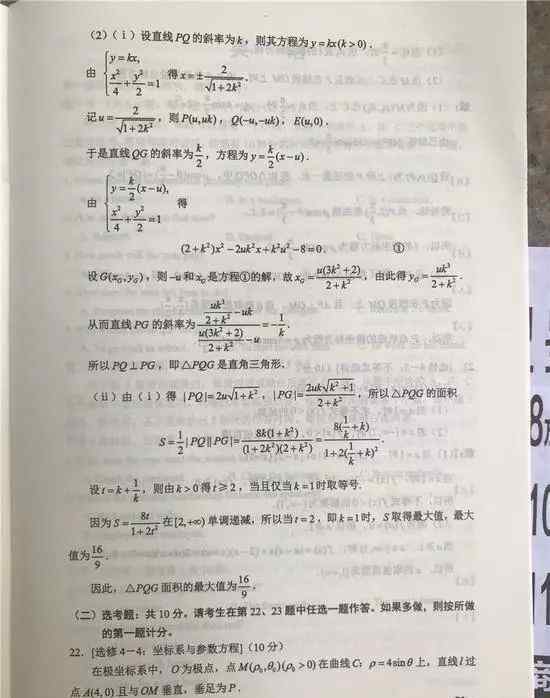 (2)(ⅰ) 设直线PQ的斜率为k，则其方程为y=kx(k>0).
由 {y=kx, x²/4+y²/2=1 得x=±2/√(1+2k²).
记u=2/√(1+2k²)，则P(u,uk)，Q(-u,-uk)，E(u,0).
于是直线QG的斜率为k/2，方程为y=k/2(x-u).
由 {y=k/2(x-u), x²/4+y²/2=1 得
(2+k²)x²-2uk²x+k²u²-8=0. ①
设G(x_G,y_G)，则-u和x_G是方程①的解，故x_G=u(3k²+2)/(2+k²)，由此得y_G=uk³/(2+k²).
从而直线PG的斜率为(uk³/(2+k²)-uk)/(u(3k²+2)/(2+k²)-u)=-1/k.
所以PQ⊥PG，即△PQG是直角三角形.
(ⅱ) 由(ⅰ)得 |PQ|=2u√(1+k²)，|PG|=2uk√(k²+1)/(2+k²)，所以△PQG的面积
S=1/2|PQ||PG|=8k(1+k²)/((1+2k²)(2+k²))=8(1/k+k)/(1+2(1/k+k)²).
设t=k+1/k，则由k>0得t≥2，当且仅当k=1时取等号.
因为S=8t/(1+2t²)在[2,+∞)单调递减，所以当t=2，即k=1时，S取得最大值，最大
值为16/9.
因此，△PQG面积的最大值为16/9.
(二) 选考题：共10分。请考生在第22、23题中任选一题作答。如果多做，则按所做
的第一题计分。
22. [选修4-4：坐标系与参数方程](10分)
在极坐标系中，O为极点，点M(ρ₀,θ₀)(ρ₀>0)在曲线C：ρ=4sinθ上，直线l过
点A(4,0)且与OM垂直，垂足为P.